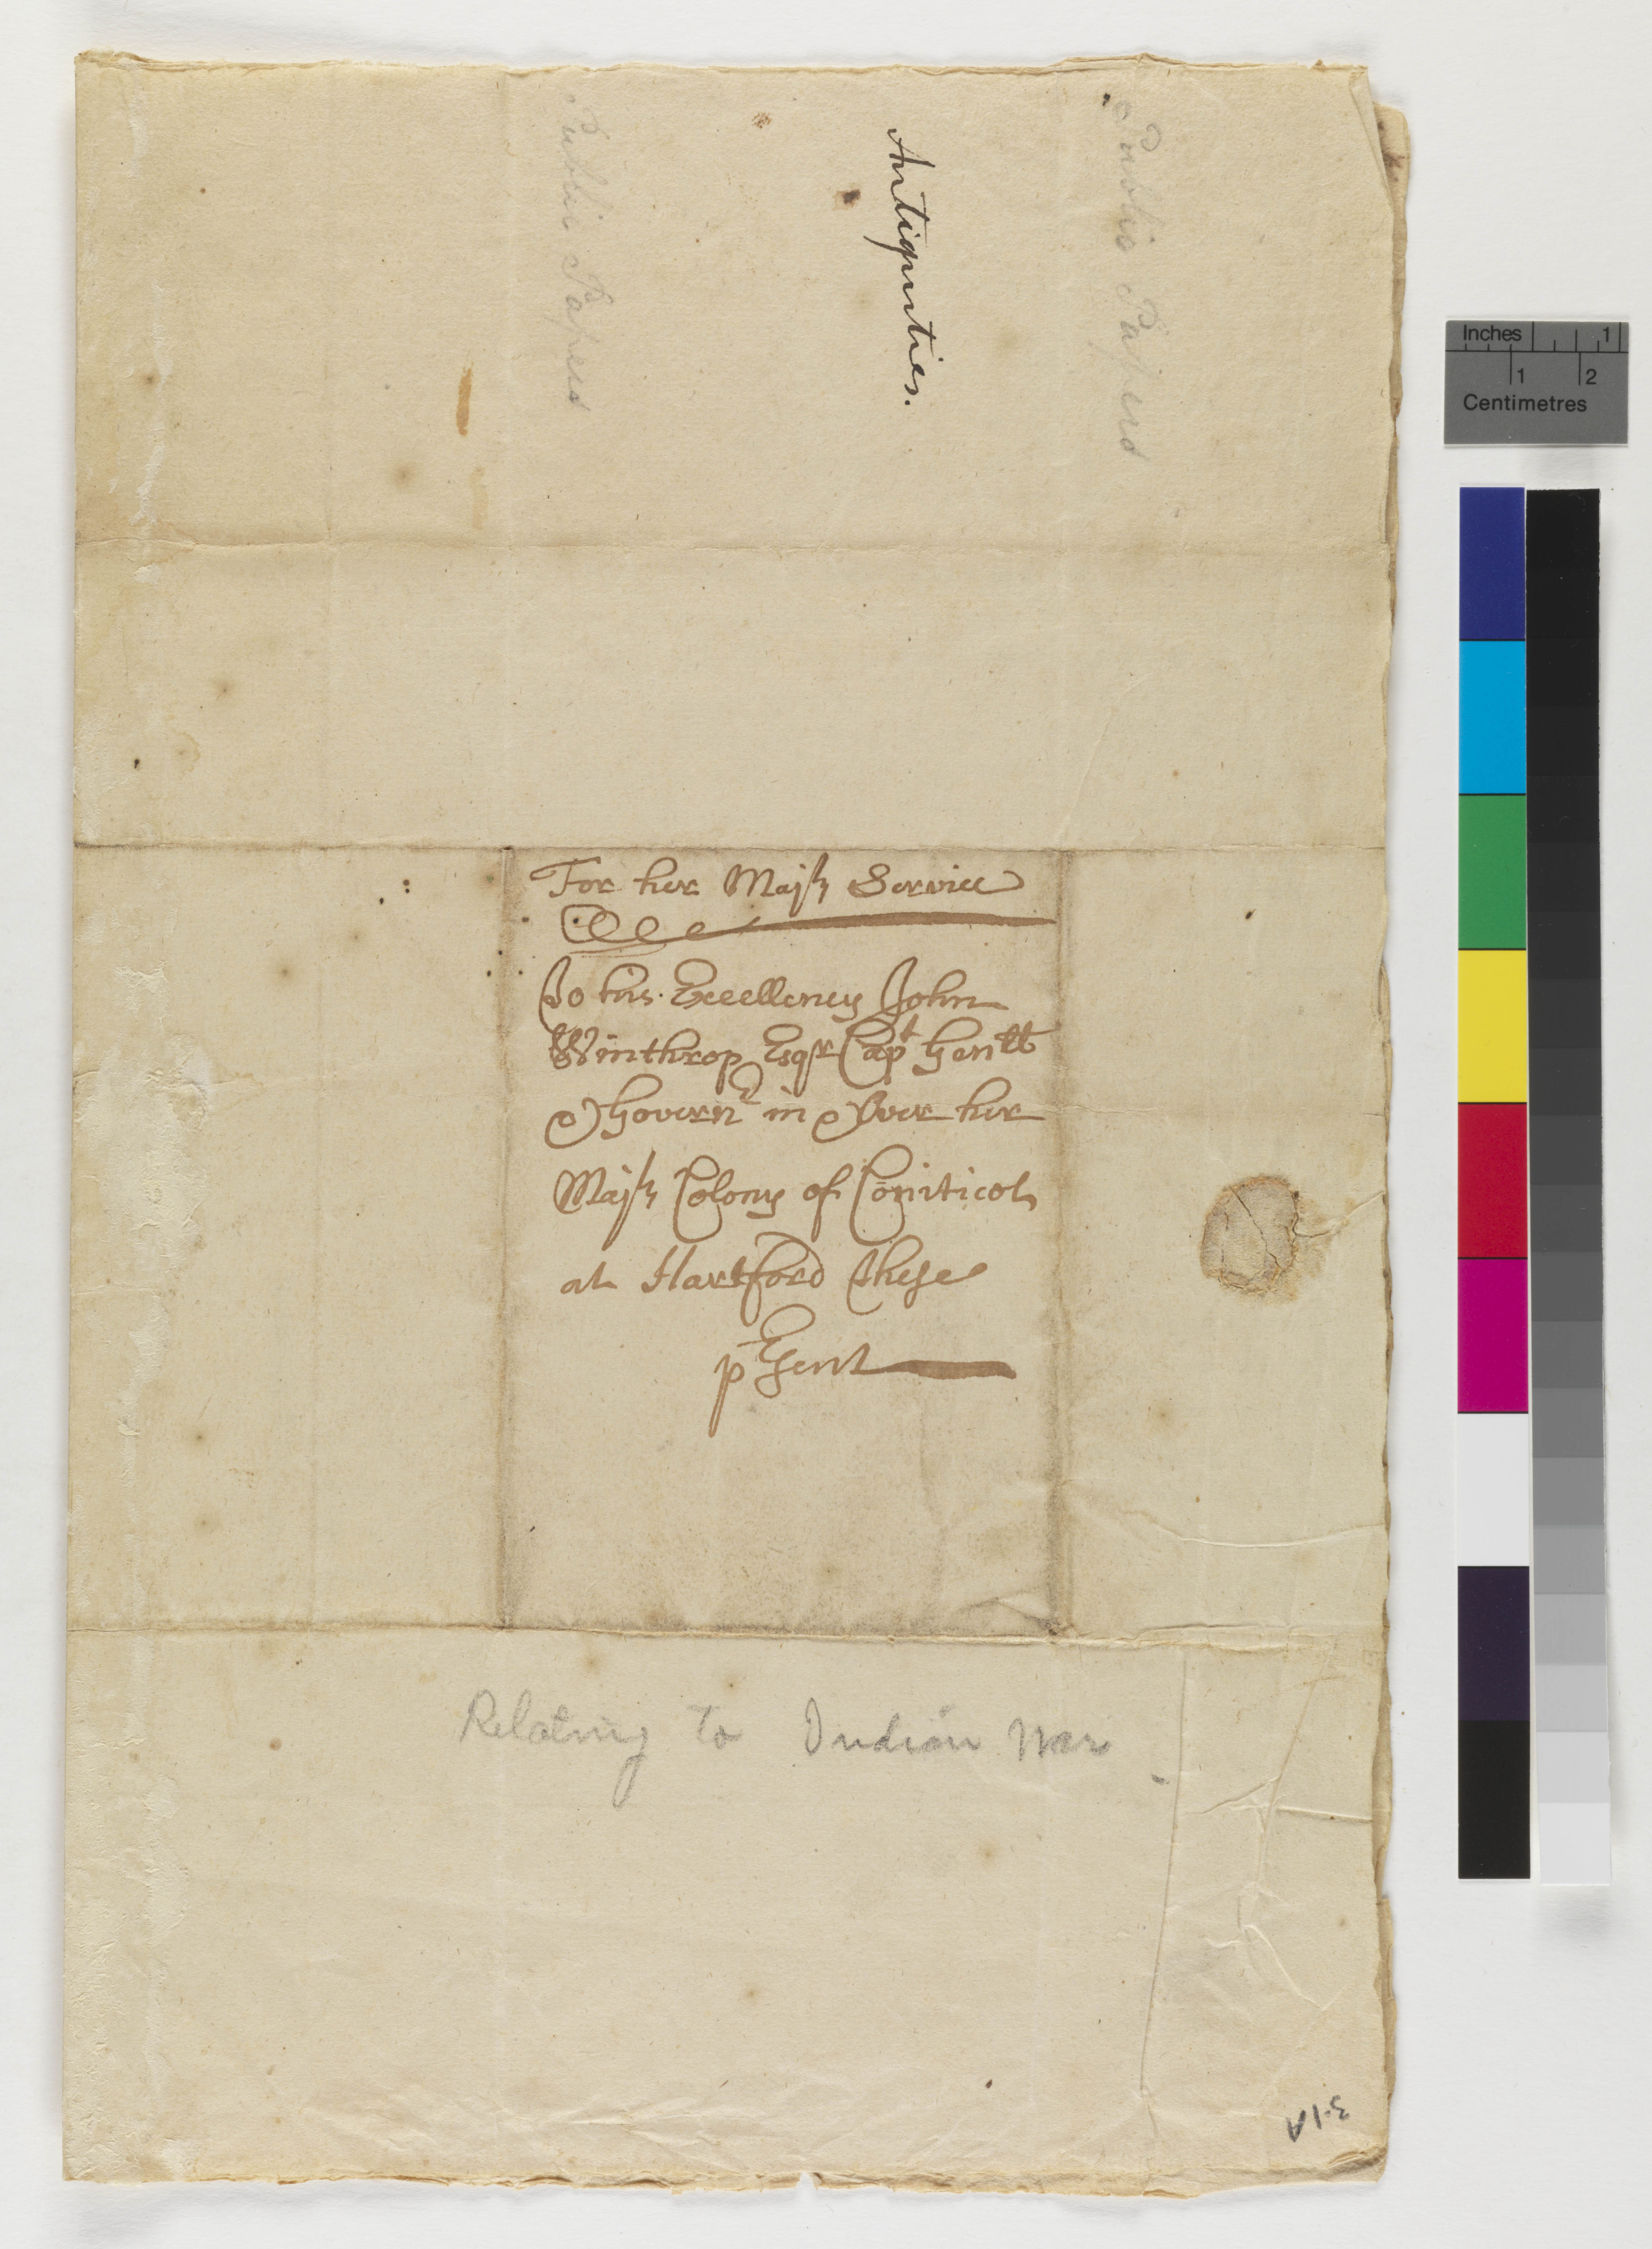 Public Papers
Antiquities.
Public Papers
For her Majty Service
To his Excellency John
Winthrop Esqr Capt Genll
& Governr in & Over her
Majty Colony of Coniticot
at Hartford These
pEsent
Relating to Indian War
3.1A
Inches 1
1 2
Centimetres